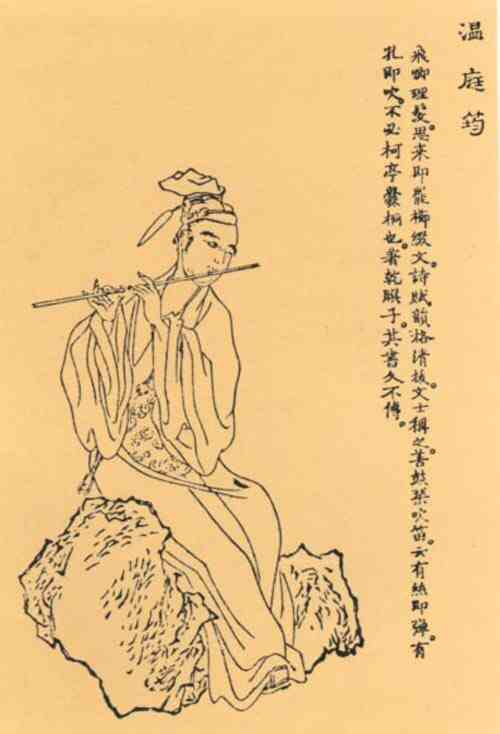 温庭筠
飛卿理髮。思来即罷櫛綴文。詩賦韻格清拔。文士稱之。善鼓琴吹笛。云有絲即彈。有
孔即吹。不必柯亭爨桐也。著乾𦠆子。其書久不傳。